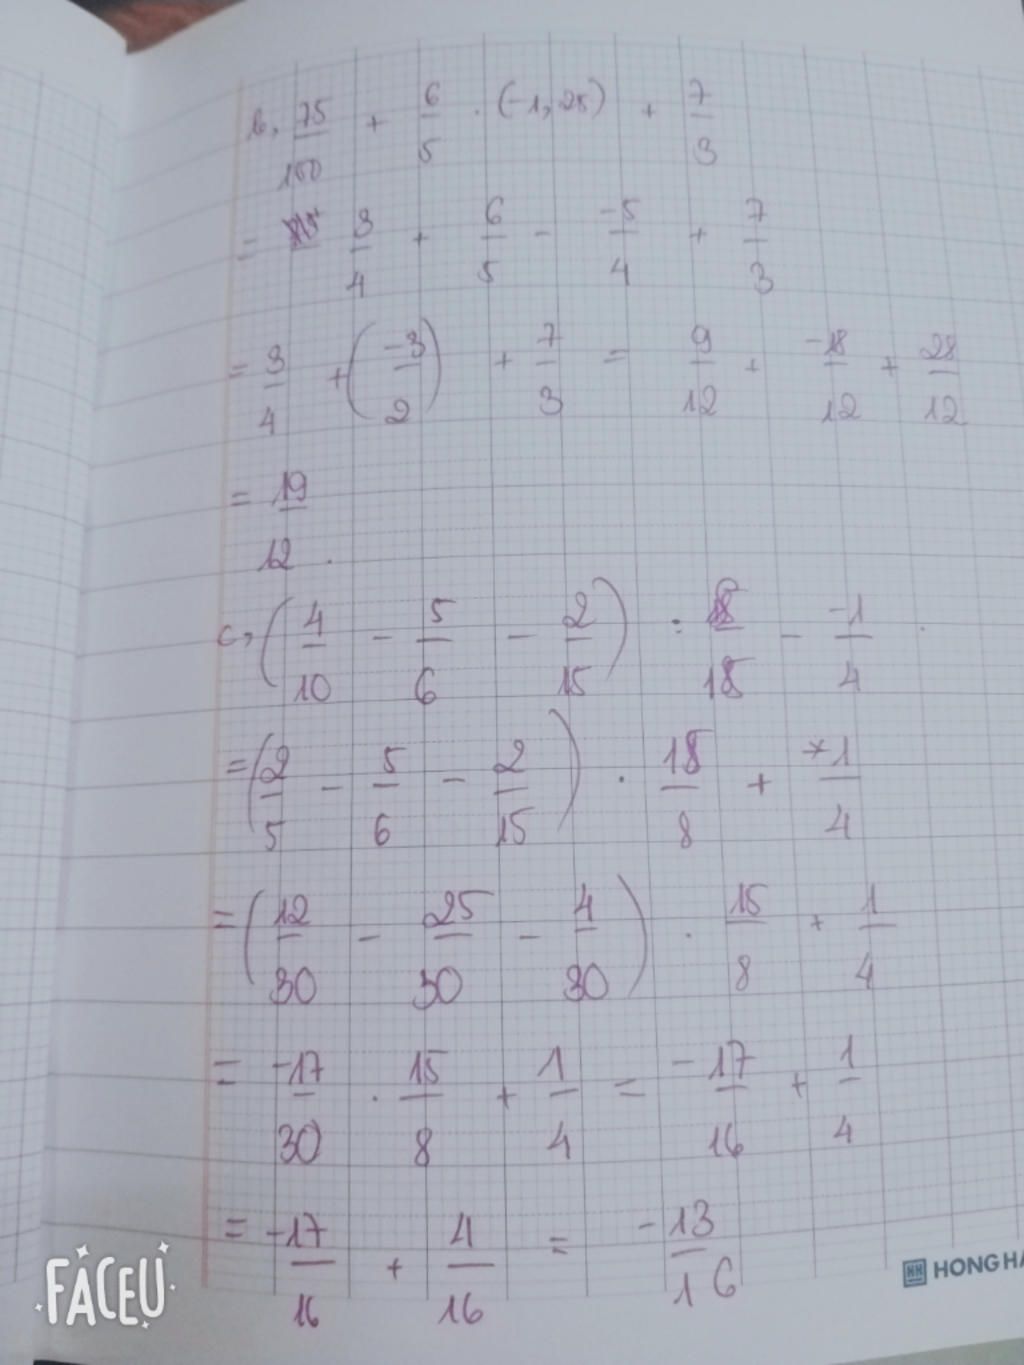 b, 75/100 + 6/5 . (-1,25) + 7/3
= 3/4 + 6/5 - -5/4 + 7/3
= 3/4 + (-3/2) + 7/3 = 9/12 + -18/12 + 28/12
= 19/12 .
c, (4/10 - 5/6 - 2/15) : 8/15 - -1/4
= (2/5 - 5/6 - 2/15) . 15/8 + 1/4
= (12/30 - 25/30 - 4/30) . 15/8 + 1/4
= -17/30 . 15/8 + 1/4 = -17/16 + 1/4
= -17/16 + 4/16 = -13/16
HONG HA
FACEU